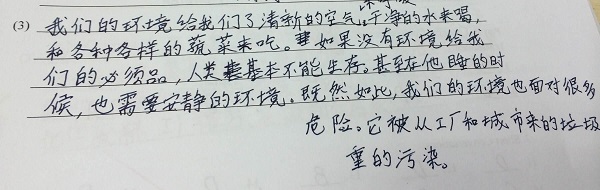 (3) 我们的环境给我们了清新的空气,干净的水来喝,
和各种各样的蔬菜来吃。如果没有环境给我
们的必须品,人类基本不能生存。甚至在他睡的时
候,也需要安静的环境。既然如此,我们的环境也面对很多
危险。它被从工厂和城市来的垃圾
重的污染。